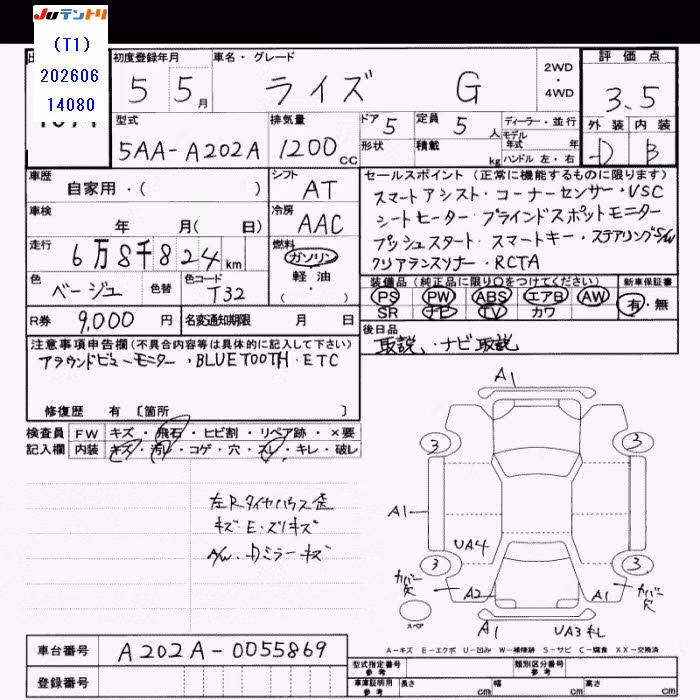 Juテントリ
(T1)
202606
14080
初度登録年月
5 5月
車名・グレード
ライズ G
2WD
・
4WD
評価点
3.5
外装 内装
D B
型式
5AA-A202A
排気量
1200cc
ドア 5
定員 5人
形状
積載 kg
ディーラー・並行
モデル
年式 年
ハンドル 左・右
車歴
自家用・( )
シフト
AT
車検
年 月( 日)
冷房
AAC
走行
6万8千824km
燃料
ガソリン
軽油
( ・ )
色
ベージュ
色替
色コード
T32
R券 9,000 円
名変通知期限 月 日
セールスポイント (正常に機能するものに限ります)
スマートアシスト・コーナーセンサー・VSC
シートヒーター・ブラインドスポットモニター
プッシュスタート・スマートキー・ステアリングS/W
クリアランスソナー・RCTA
装備品(純正品に限り○をつけてください)
PS PW ABS エアB AW
SR ナビ TV カワ
新車保証書
有・無
後日品
取説、・ナビ取説
注意事項申告欄(不具合内容等は具体的に記入して下さい)
アラウンドビューモニター・BLUETOOTH・ETC
修復歴 有 〔箇所 〕
検査員 FW キズ・飛石・ヒビ割・リペア跡・×要
記入欄 内装 キズ・汚レ・コゲ・穴・スレ・キレ・破レ
左Rタイヤハウス歪
キズ・E・ズリキズ
A/W・ドミラーキズ
A1
3 3
A1
UA4
3 3
カバー欠
A2 A1
カバー欠
スペア
A1
UA3キレ
A-キズ E-エクボ U-凹み W-補修跡 S-サビ C-腐食 XX-交換済
車台番号 A202A-0055869
登録番号
型式指定番号
参考
類別区分番号
参考
車庫証明用
参考
長さ cm 幅 cm 高さ cm